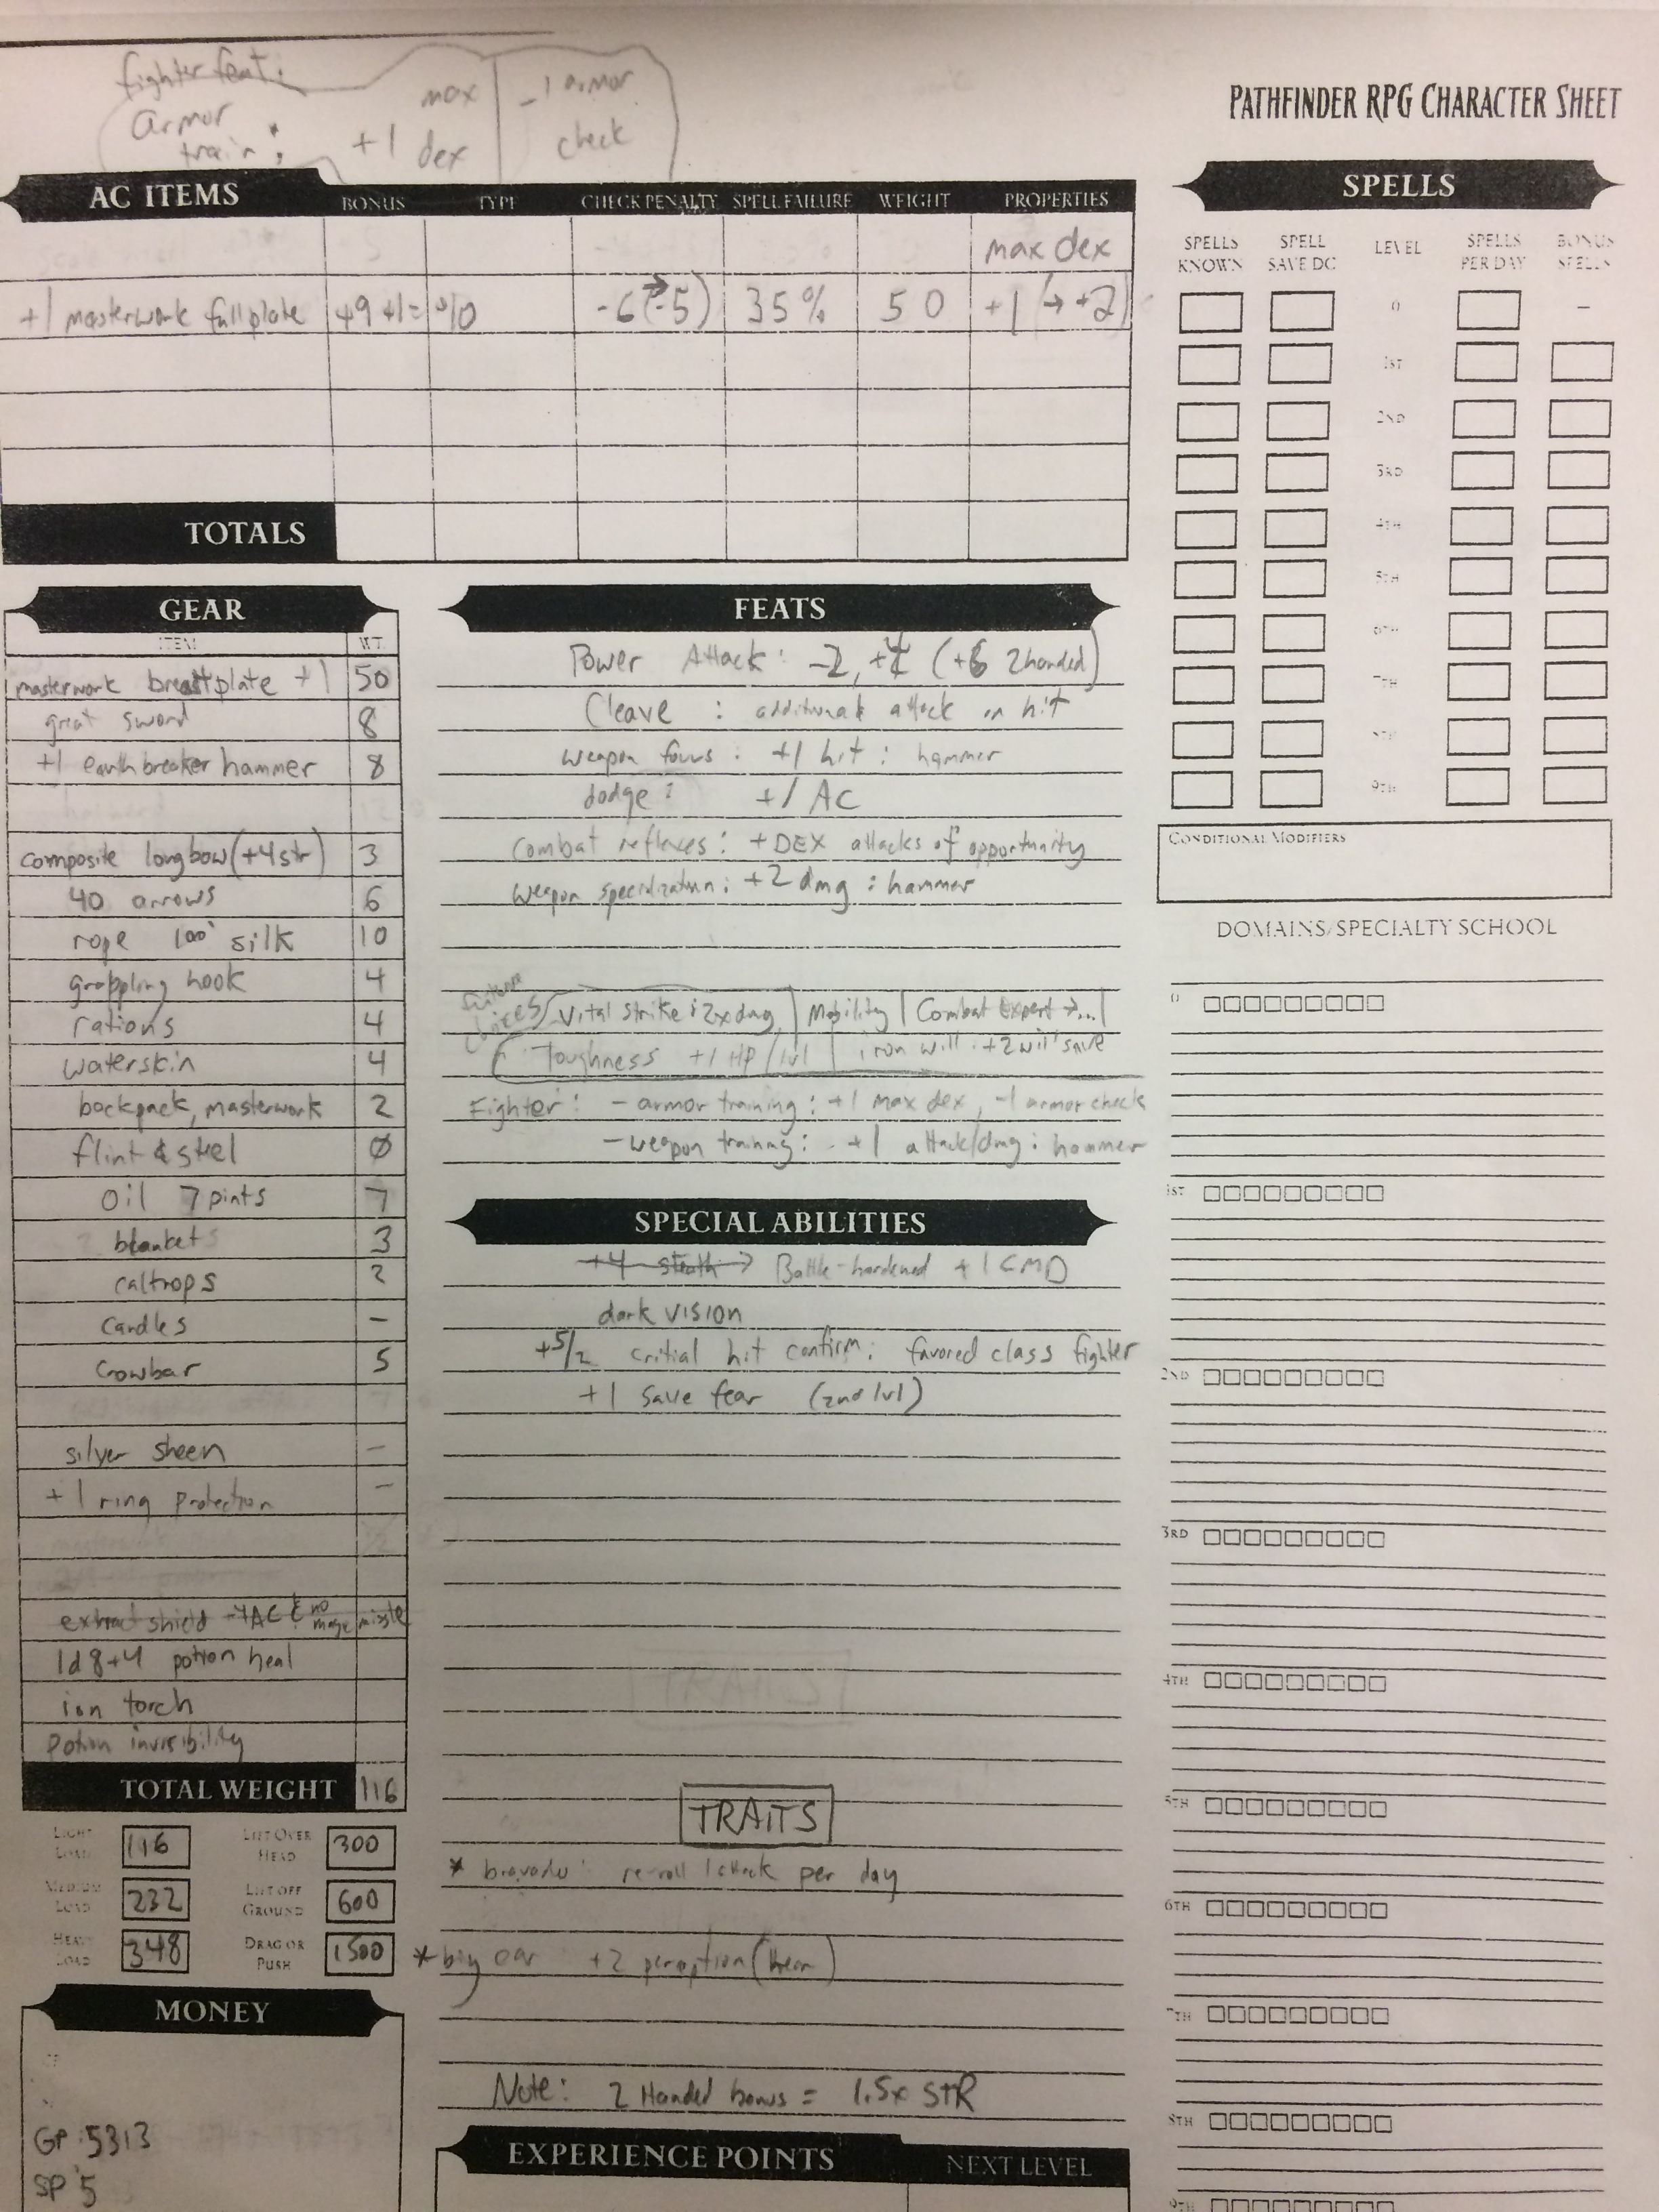 fighter feat:
armor train:
+1 max dex
-1 armor check
PATHFINDER RPG CHARACTER SHEET
AC ITEMS BONUS TYPE CHECK PENALTY SPELL FAILURE WEIGHT PROPERTIES
max dex
+1 masterwork fullplate +9 +1= +10 -6(→-5) 35% 50 +1 (→+2)
TOTALS
GEAR
ITEM WT.
masterwork breastplate +1 50
great sword 8
+1 earthbreaker hammer 8
composite longbow (+4 str) 3
40 arrows 6
rope 100' silk 10
grappling hook 4
rations 4
waterskin 4
backpack, masterwork 2
flint & steel 0
oil 7 pints 7
blankets 3
caltrops 2
candles -
crowbar 5
silver sheen -
+1 ring protection -
extract shield +4AC & no mage missle
1d8+4 potion heal
ion torch
potion invisibility
TOTAL WEIGHT 116
LIGHT LOAD 116 LIFT OVER HEAD 300
MEDIUM LOAD 232 LIFT OFF GROUND 600
HEAVY LOAD 348 DRAG OR PUSH 1500
MONEY
CP
GP 5313
SP 5
FEATS
Power Attack: -2, +4 (+6 2handed)
Cleave : additional attack on hit
weapon focus : +1 hit : hammer
dodge : +1 AC
Combat reflexes : +DEX attacks of opportunity
weapon specialization : +2 dmg : hammer
future choices
Vital strike : 2xdmg | Mobility | Combat Expert →...|
Toughness +1 HP/lvl | iron will : +2 will save
Fighter : - armor training : +1 max dex, -1 armor check
- weapon training : +1 attack/dmg : hammer
SPECIAL ABILITIES
+4 stealth → Battle-hardened +1 CMD
dark vision
+5/2 critial hit confirm : favored class fighter
+1 save fear (2nd lvl)
TRAITS
TRAITS
* bravado : re-roll 1 attack per day
* big ear +2 perception (hear)
Note: 2 Handed bonus = 1.5x STR
EXPERIENCE POINTS NEXT LEVEL
SPELLS
SPELLS KNOWN SPELL SAVE DC LEVEL SPELLS PER DAY BONUS SPELLS
0 -
1ST
2ND
3RD
4TH
5TH
6TH
7TH
8TH
9TH
CONDITIONAL MODIFIERS
DOMAINS/SPECIALTY SCHOOL
0
1ST
2ND
3RD
4TH
5TH
6TH
7TH
8TH
9TH